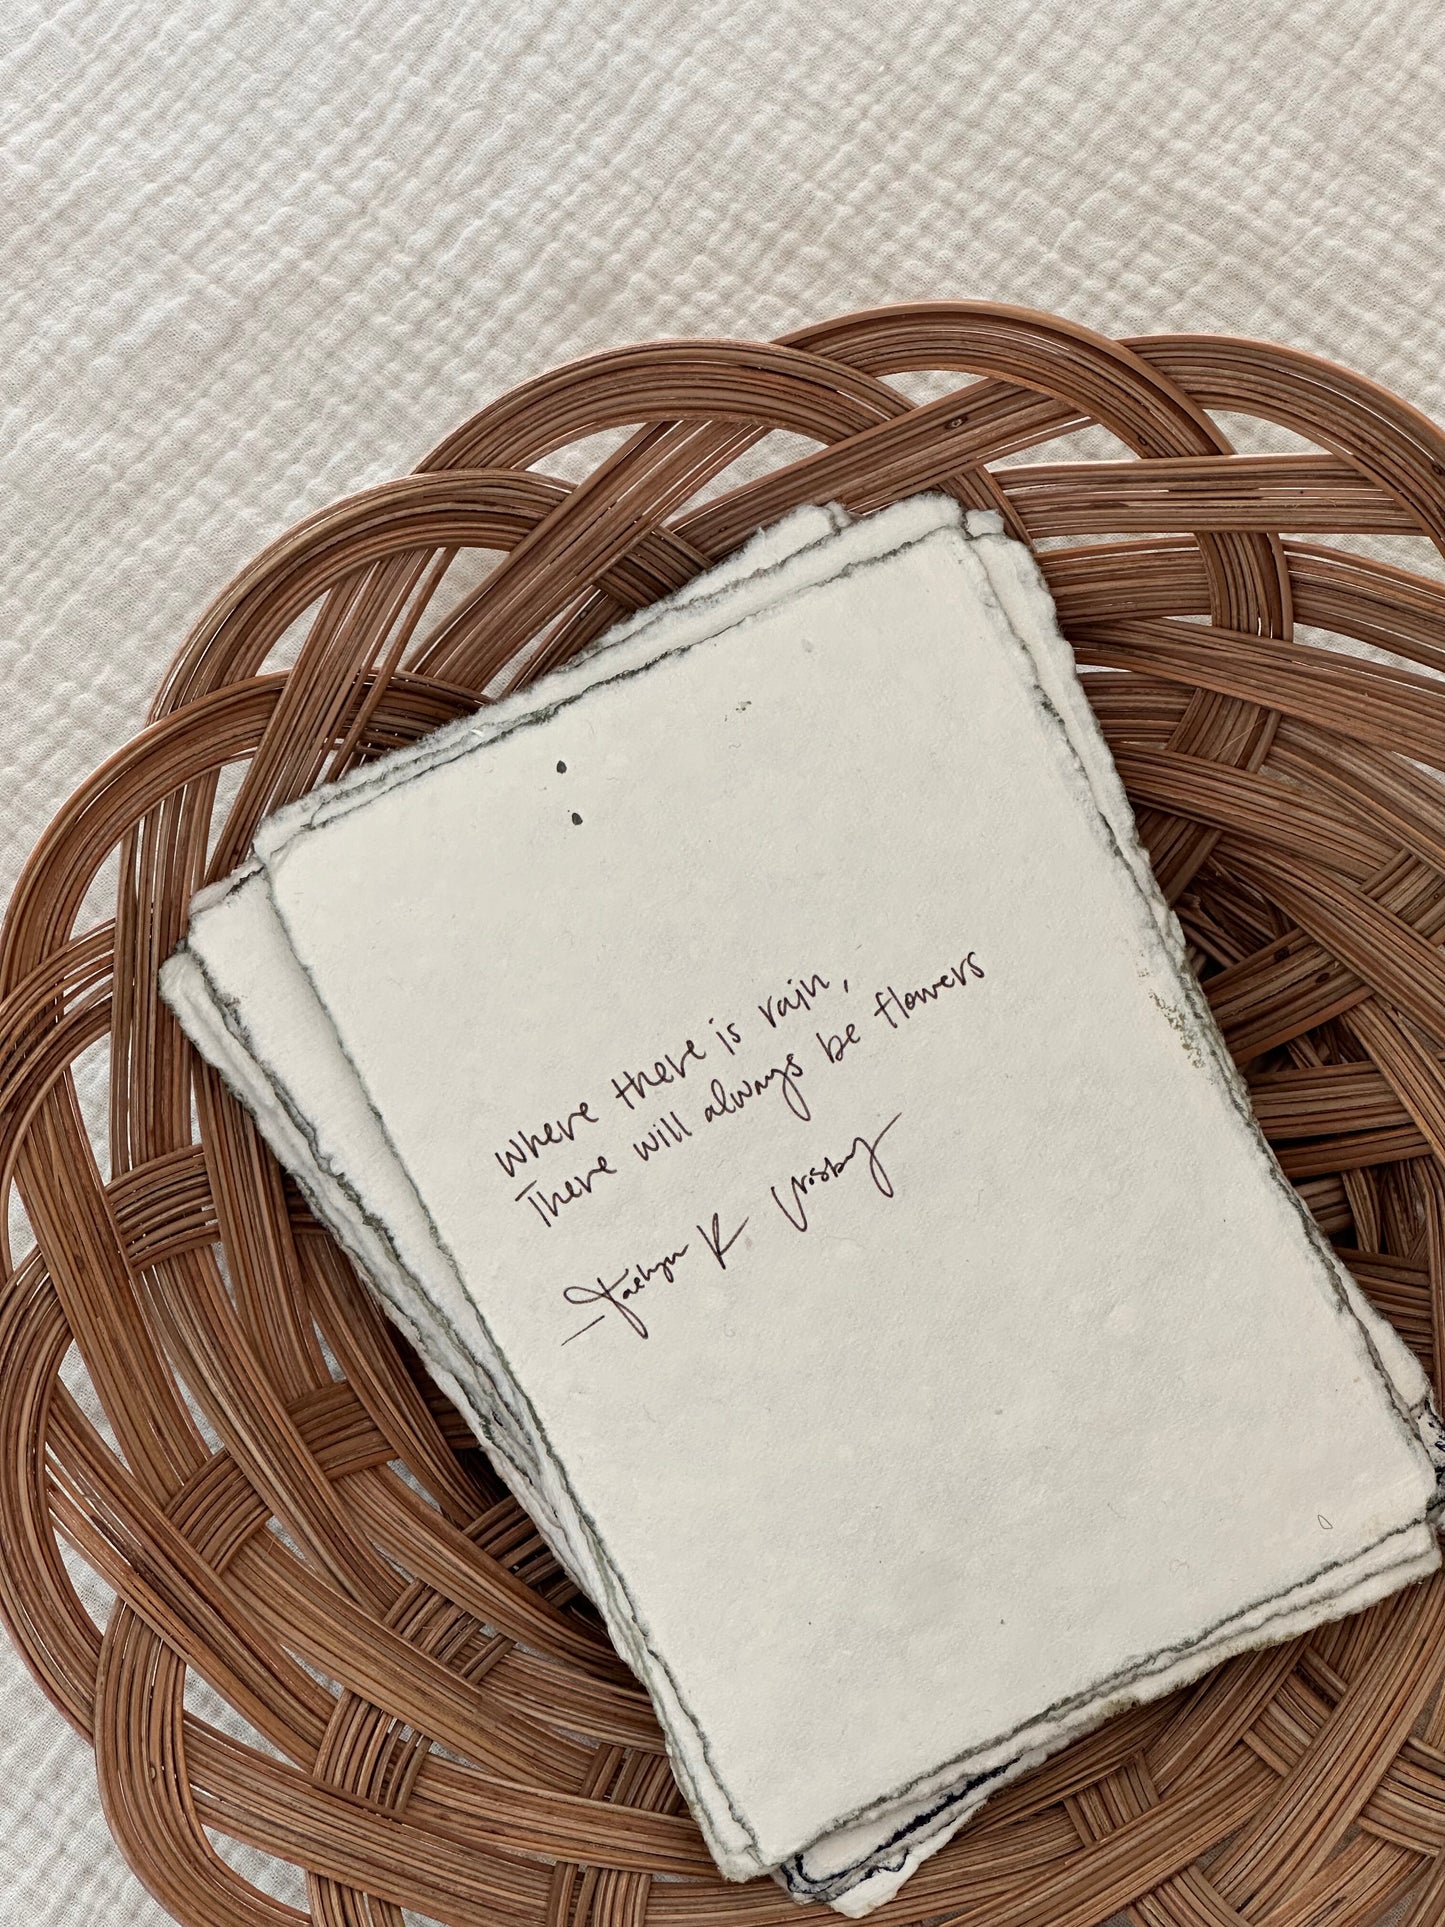 Where there is rain,
There will always be flowers
—Jaelyn K. Crosby